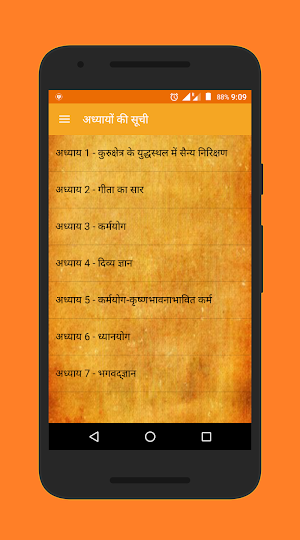 88% 9:09
अध्यायों की सूची
अध्याय 1 - कुरुक्षेत्र के युद्धस्थल में सैन्य निरिक्षण
अध्याय 2 - गीता का सार
अध्याय 3 - कर्मयोग
अध्याय 4 - दिव्य ज्ञान
अध्याय 5 - कर्मयोग-कृष्णभावनाभावित कर्म
अध्याय 6 - ध्यानयोग
अध्याय 7 - भगवद्ज्ञान